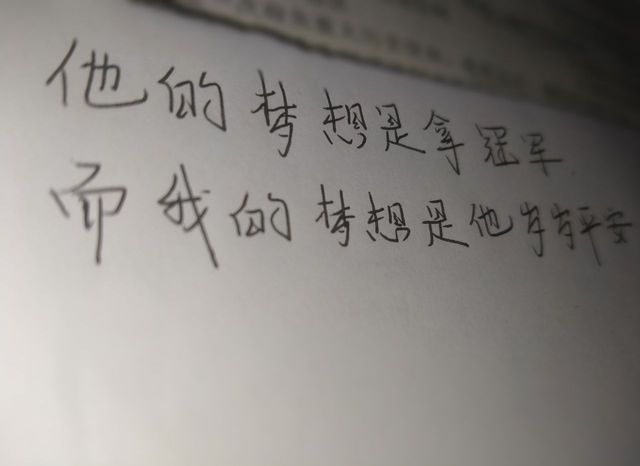 他的梦想是拿冠军
而我的梦想是他岁岁平安